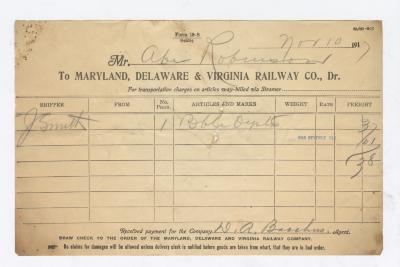 Form 18-S
Nov 10 1917
Mr. Abe Robinson
To MARYLAND, DELAWARE & VIRGINIA RAILWAY CO., Dr.
For transportation charges on articles way-billed via Steamer
SHIPPER FROM No. Pkgs. ARTICLES AND MARKS WEIGHT RATE FREIGHT
J Smith 1 Bbl 37
01
38
Received payment for the Company, D. A. Agent.
DRAW CHECK TO THE ORDER OF THE MARYLAND, DELAWARE AND VIRGINIA RAILWAY COMPANY.
No claims for damages will be allowed unless delivery clerk is notified before goods are taken from wharf, that they are in bad order.